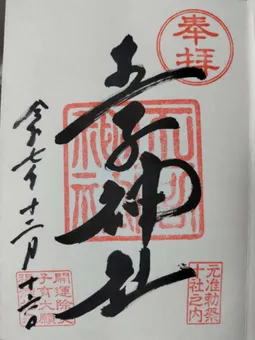 奉拝
王子神社
元准勅祭
十社之内
令和七年十二月十六日
開運除災
子育大願